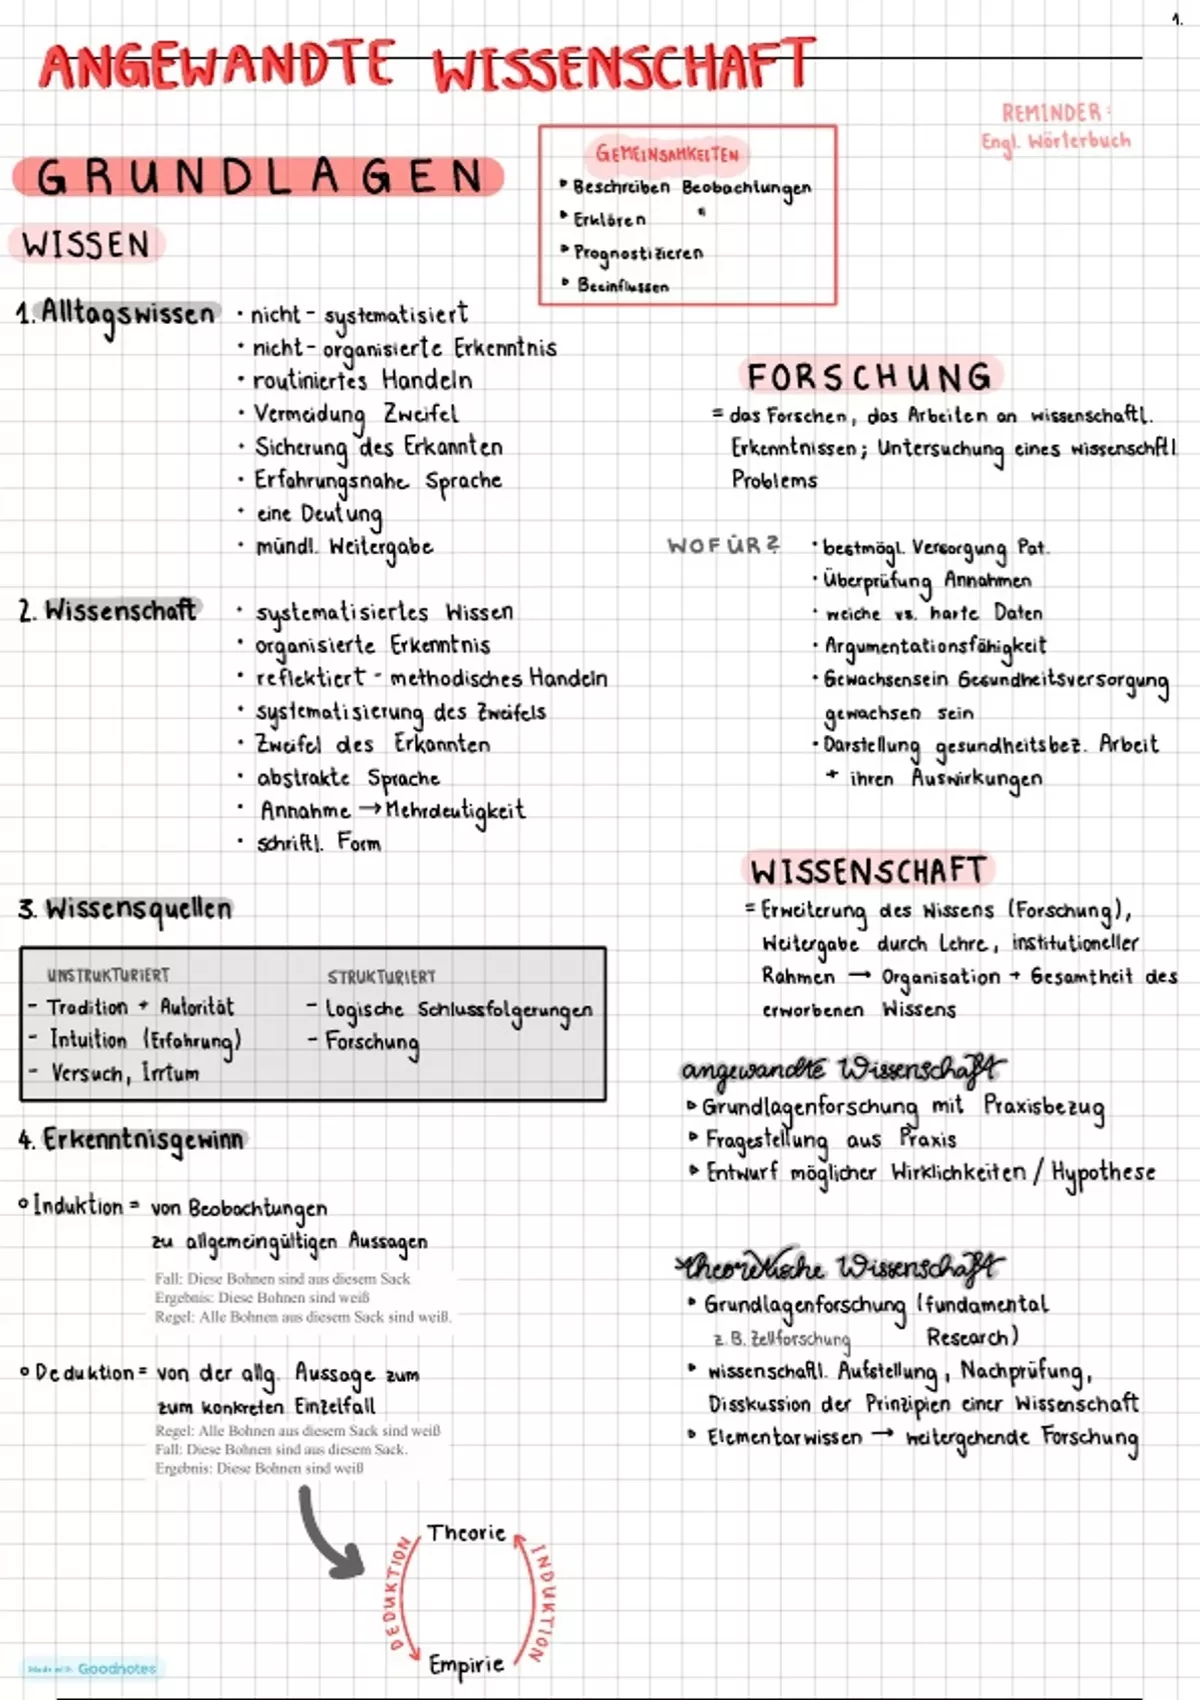 1.
ANGEWANDTE WISSENSCHAFT
REMINDER:
Engl. Wörterbuch
GRUNDLAGEN
GEMEINSAMKEITEN
Beschreiben Beobachtungen
Erklären "
Prognostizieren
Beeinflussen
WISSEN
1. Alltagswissen
• nicht - systematisiert
• nicht - organisierte Erkenntnis
• routiniertes Handeln
• Vermeidung Zweifel
• Sicherung des Erkannten
• Erfahrungsnahe Sprache
• eine Deutung
• mündl. Weitergabe
2. Wissenschaft
• systematisiertes Wissen
• organisierte Erkenntnis
• reflektiert - methodisches Handeln
• systematisierung des Zweifels
• Zweifel des Erkannten
• abstrakte Sprache
• Annahme → Mehrdeutigkeit
• schriftl. Form
3. Wissensquellen
UNSTRUKTURIERT
- Tradition + Autorität
- Intuition (Erfahrung)
- Versuch, Irrtum
STRUKTURIERT
- Logische Schlussfolgerungen
- Forschung
4. Erkenntnisgewinn
Induktion = von Beobachtungen
zu allgemeingültigen Aussagen
Fall: Diese Bohnen sind aus diesem Sack
Ergebnis: Diese Bohnen sind weiß
Regel: Alle Bohnen aus diesem Sack sind weiß.
Deduktion = von der allg. Aussage zum
zum konkreten Einzelfall
Regel: Alle Bohnen aus diesem Sack sind weiß
Fall: Diese Bohnen sind aus diesem Sack.
Ergebnis: Diese Bohnen sind weiß
Theorie
DEDUKTION
INDUKTION
Empirie
FORSCHUNG
= das Forschen, das Arbeiten an wissenschaftl.
Erkenntnissen; Untersuchung eines wissenschftl
Problems
WOFÜR?
• bestmögl. Versorgung Pat.
• Überprüfung Annahmen
• weiche vs. harte Daten
• Argumentationsfähigkeit
• Gewachsensein Gesundheitsversorgung
gewachsen sein
• Darstellung gesundheitsbez. Arbeit
+ ihren Auswirkungen
WISSENSCHAFT
= Erweiterung des Wissens (Forschung),
Weitergabe durch Lehre, institutioneller
Rahmen → Organisation + Gesamtheit des
erworbenen Wissens
angewandte Wissenschaft
Grundlagenforschung mit Praxisbezug
Fragestellung aus Praxis
Entwurf möglicher Wirklichkeiten / Hypothese
theoretische Wissenschaft
Grundlagenforschung (fundamental
z.B. Zellforschung Research)
wissenschaftl. Aufstellung, Nachprüfung,
Disskussion der Prinzipien einer Wissenschaft
Elementarwissen → weitergehende Forschung
Made with Goodnotes